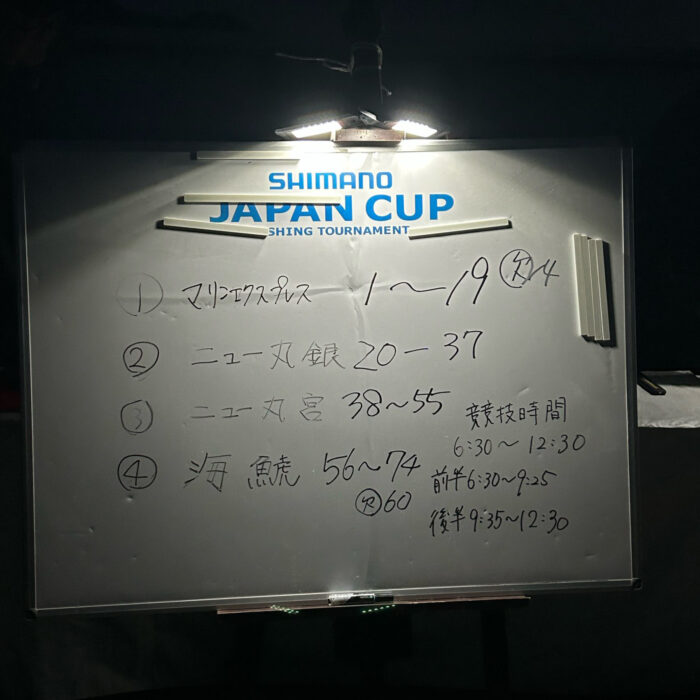 SHIMANO
JAPAN CUP
SHING TOURNAMENT
① マリンエクスプレス 1〜19 欠14
② ニュー丸銀 20-37
③ ニュー丸宮 38〜55
④ 海鯱 56〜74
欠60
競技時間
6:30〜12:30
前半6:30〜9:25
後半9:35〜12:30